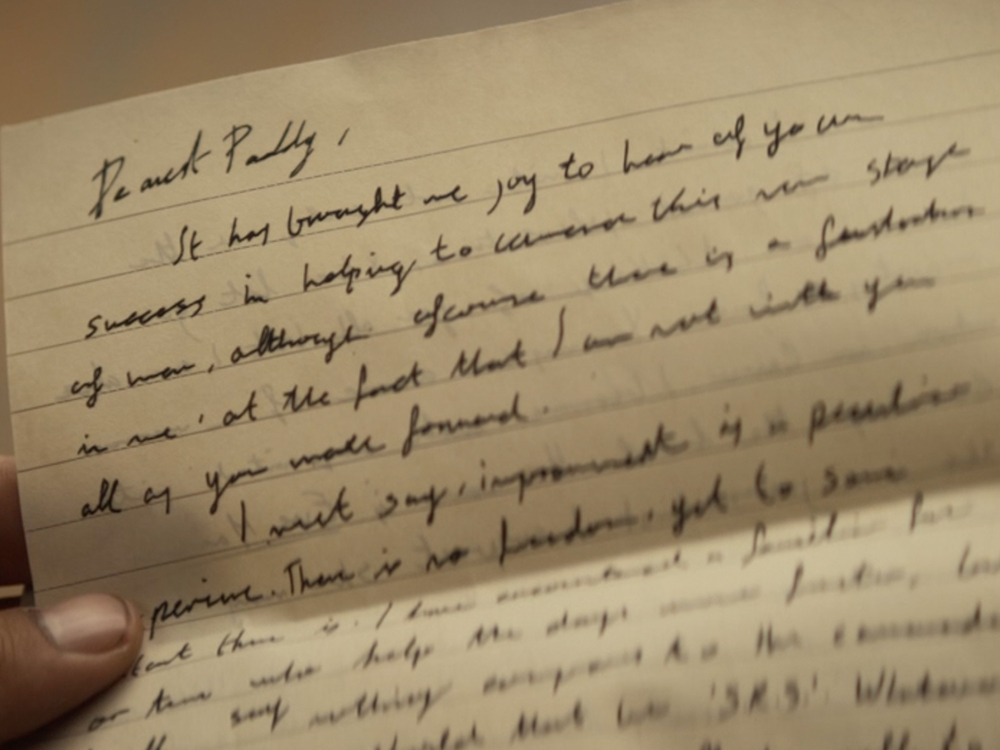 Dearest Paddy,
It has brought me joy to hear of your
success in helping to conceive this new stage
of war, although ofcourse there is a frustration
in me, at the fact that I am not with you
all as you move forward.
I must say, imprisonment is a peculiar
experience. There is no freedom, yet to some
extent there is. I have encountered a familiar face
or two who help the days move faster, but
say nothing compared to the
that late 'S.R.S.'. Whatever